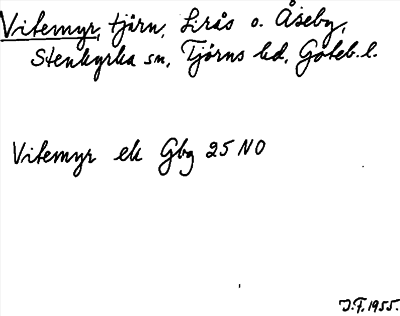 Vitemyr, tjärn, Lirås o. Åseby,
Stenkyrka sn, Tjörns hd, Göteb. l.
Vitemyr ek Gbg 25 NO
J.F. 1955.